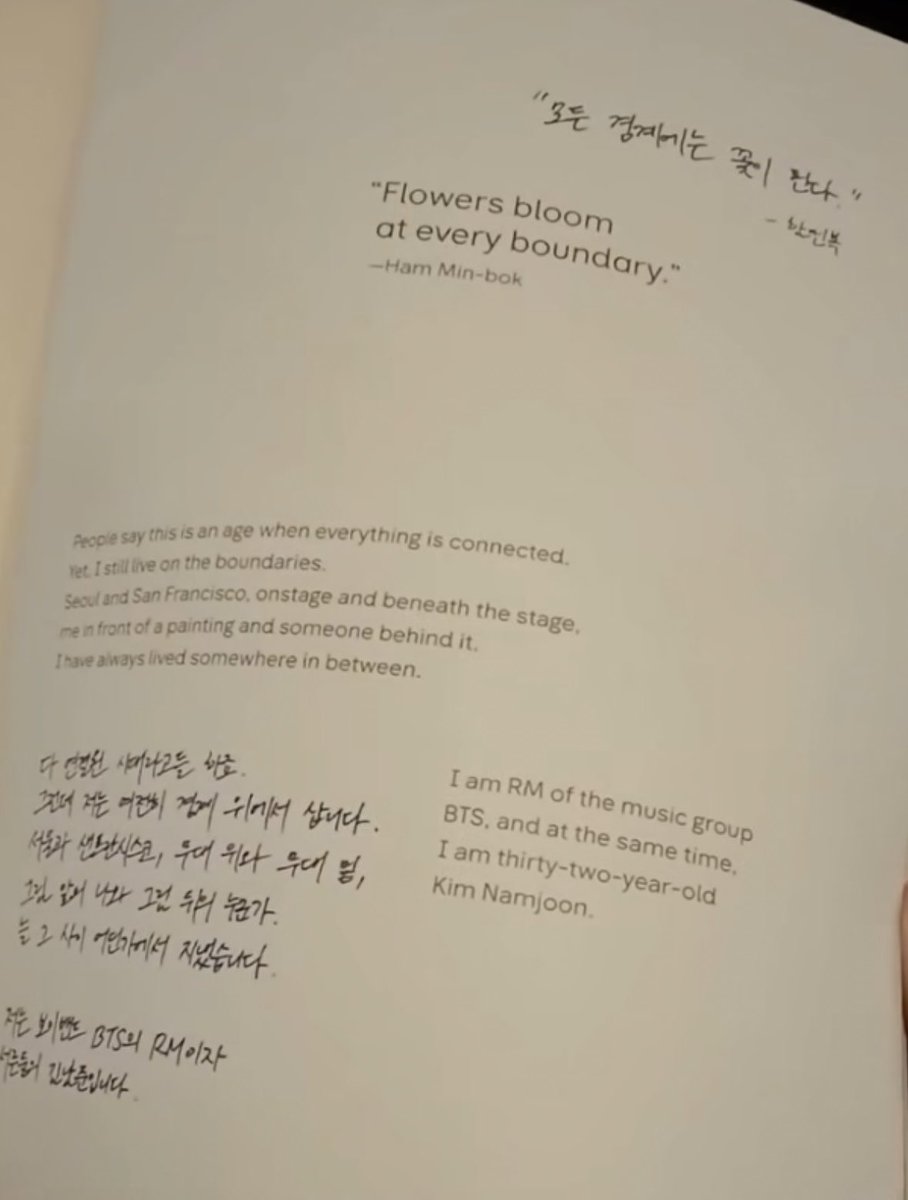 "모든 경계에는 꽃이 핀다."
- 함민복
"Flowers bloom
at every boundary."
—Ham Min-bok
People say this is an age when everything is connected.
Yet, I still live on the boundaries.
Seoul and San Francisco, onstage and beneath the stage,
me in front of a painting and someone behind it,
I have always lived somewhere in between.
다 연결된 시대라고들 하죠.
그런데 저는 여전히 경계 위에서 삽니다.
서울과 샌프란시스코, 무대 위와 무대 밑,
그림 앞의 나와 그림 뒤의 누군가.
늘 그 사이 어딘가에서 지냈습니다.
저는 보이밴드 BTS의 RM이자
서른둘의 김남준입니다.
I am RM of the music group
BTS, and at the same time,
I am thirty-two-year-old
Kim Namjoon.